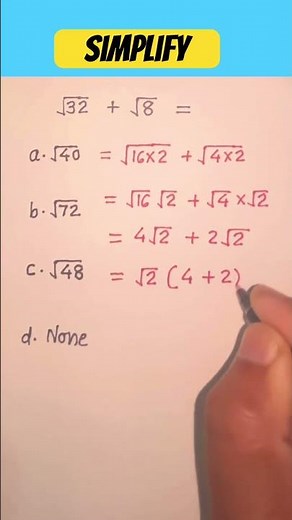 SIMPLIFY
√32 + √8 =
a. √40 = √16×2 + √4×2
b. √72 = √16 √2 + √4 × √2
= 4√2 + 2√2
c. √48 = √2 (4 + 2)
d. None